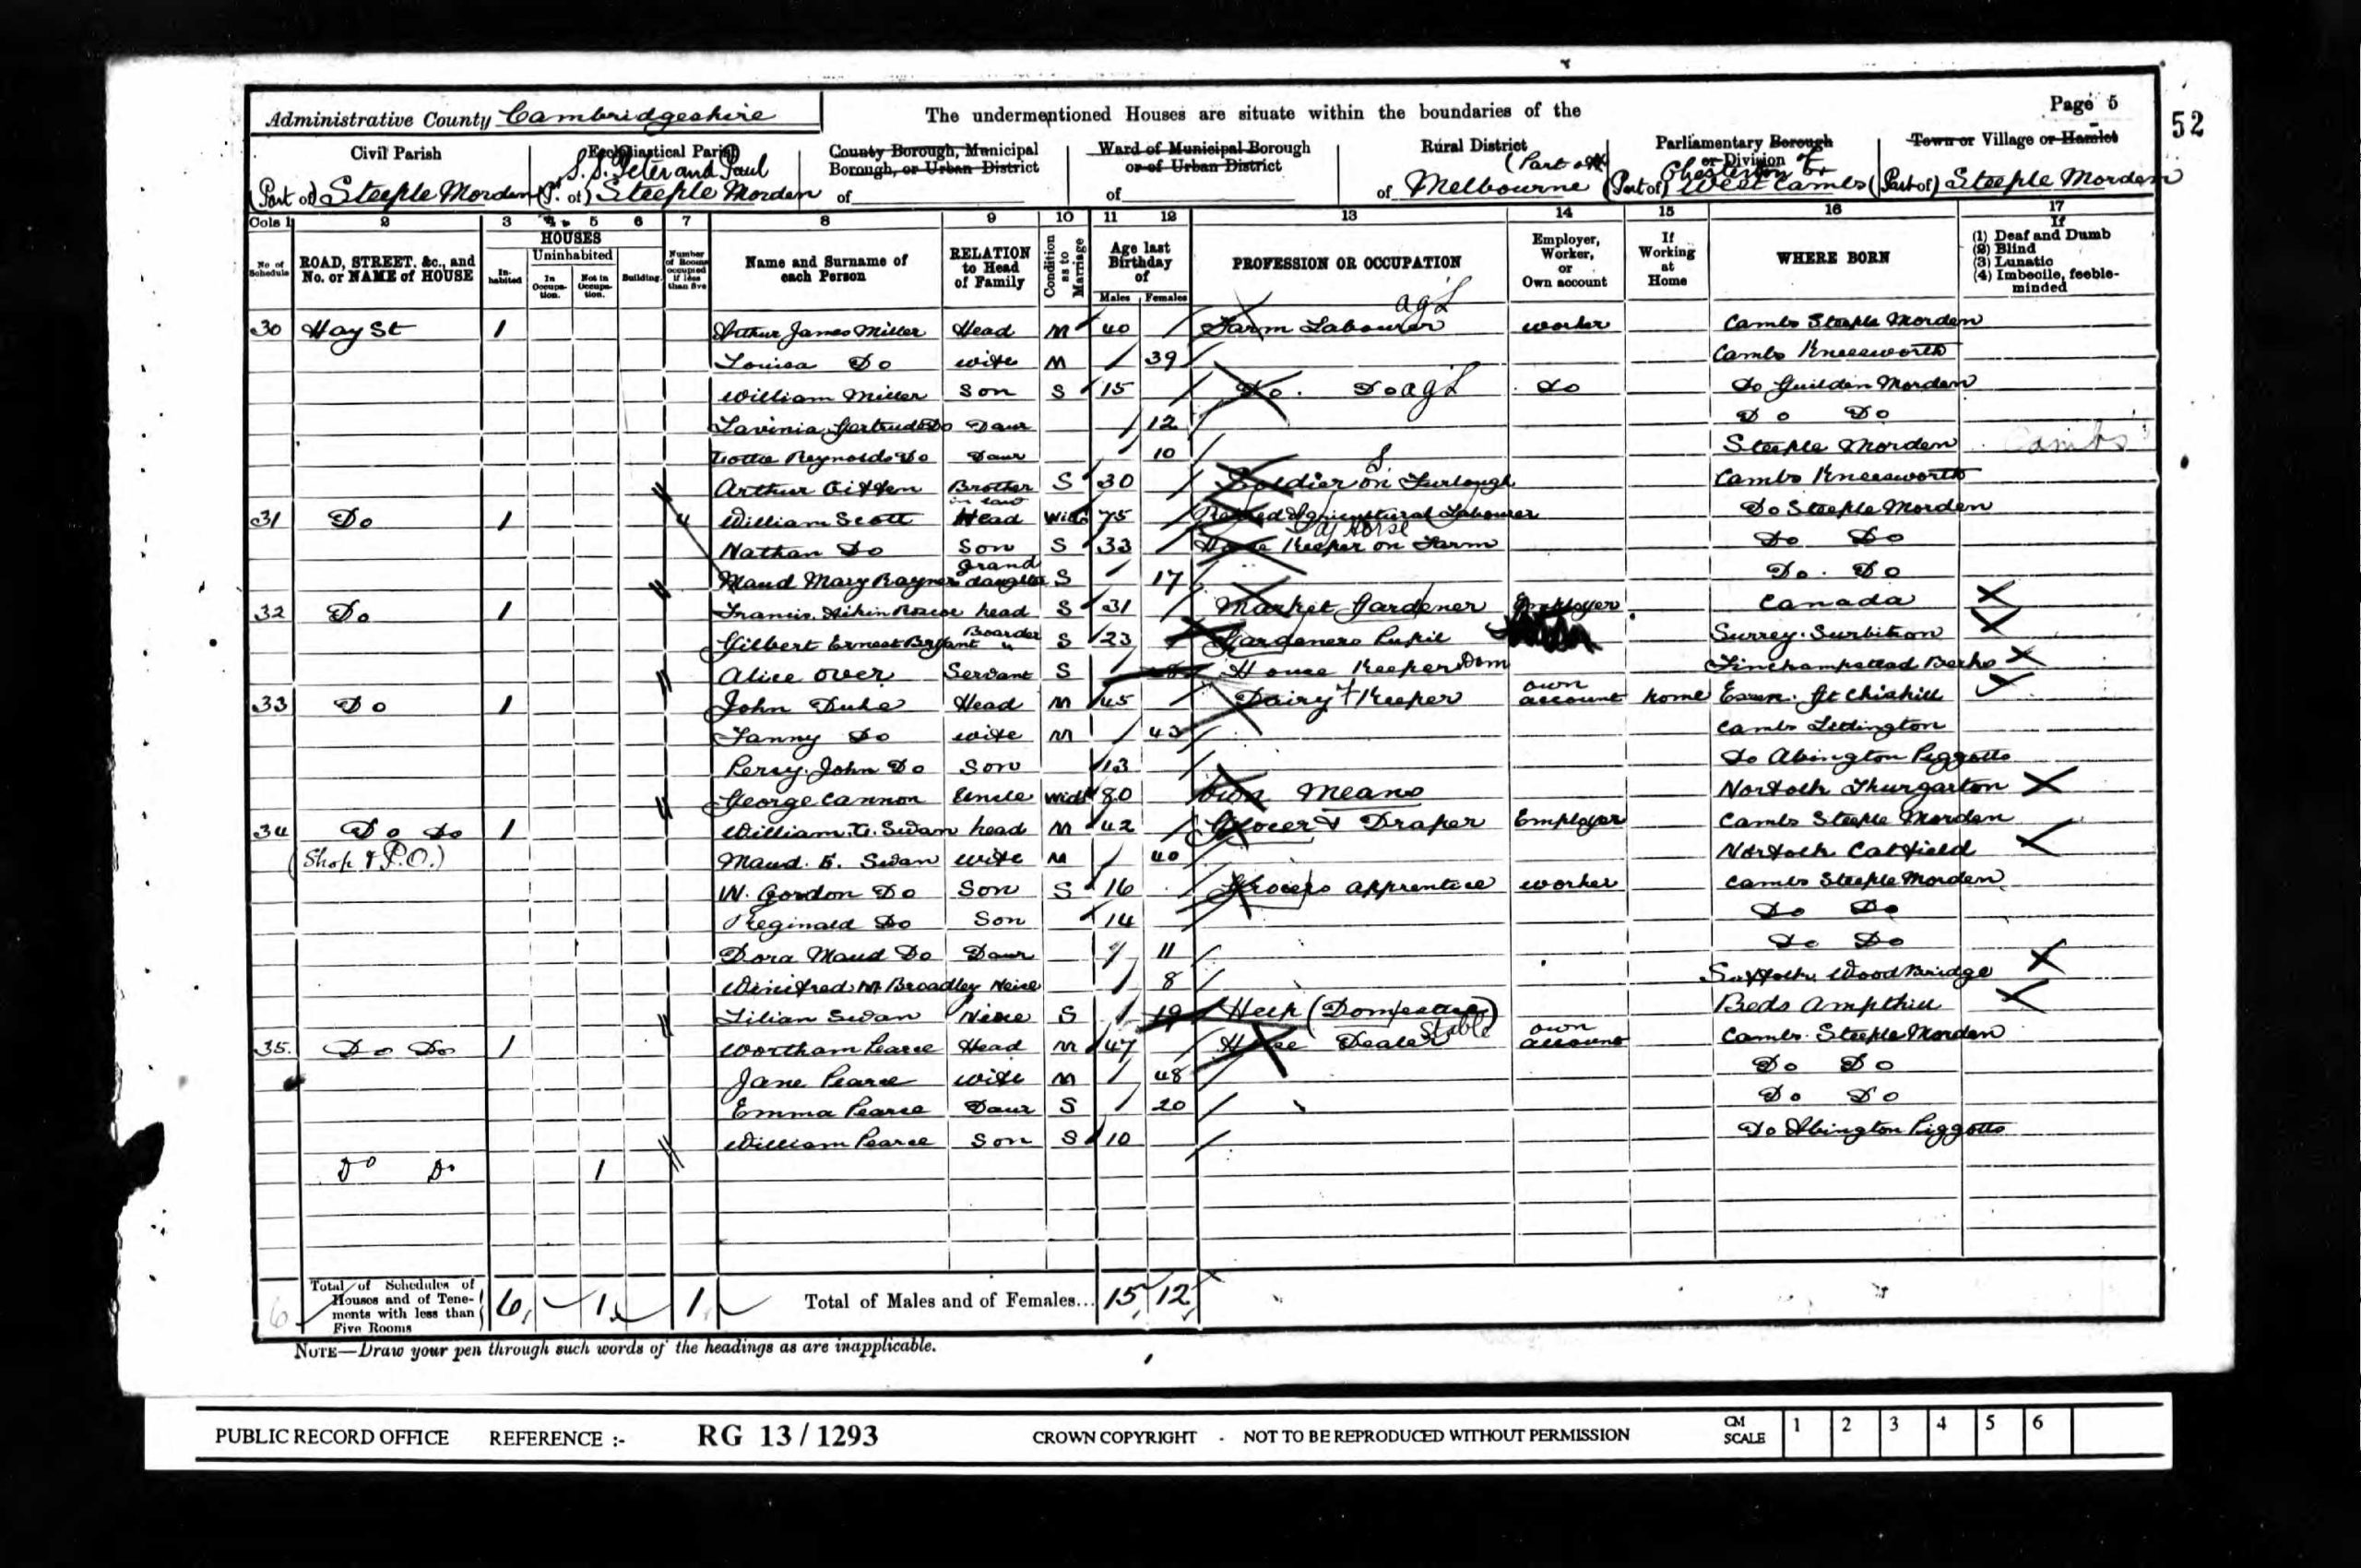 Page 5
52
Administrative County Cambridgeshire
The undermentioned Houses are situate within the boundaries of the
Civil Parish
(Part of) Steeple Morden
Ecclesiastical Parish
S.S. Peter and Paul
(P. of) Steeple Morden
County Borough, Municipal
Borough, or Urban District
of
Ward of Municipal Borough
or of Urban District
of
Rural District
(Part of)
of Melbourne
Parliamentary Borough
or Division of
Chesterton or
(Part of) West Cambs
Town or Village or Hamlet
(Part of) Steeple Morden
Cols 1 2 3 4 5 6 7 8 9 10 11 12 13 14 15 16 17
No. of Schedule
ROAD, STREET, &c., and No. or NAME of HOUSE
HOUSES
Inhabited
Uninhabited
In Occupation.
Not in Occupation.
Building.
Number of Rooms occupied if less than five
Name and Surname of each Person
RELATION to Head of Family
Condition as to Marriage
Age last Birthday of
Males Females
PROFESSION OR OCCUPATION
Employer, Worker, or Own account
If Working at Home
WHERE BORN
If
(1) Deaf and Dumb
(2) Blind
(3) Lunatic
(4) Imbecile, feeble-minded
30 Hay St 1 Arthur James Miller Head M 40 Farm Labourer agL worker Cambs Steeple Morden
Louisa Do wife M 39 Cambs Kneesworth
William Miller Son S 15 Do. Do agL Do Do Guilden Morden
Lavinia Gertrude Do Daur 12 Do Do
Lottie Reynolds Do Daur 10 Steeple Morden Cambs
Arthur Brother in law S 30 Soldier on Furlough Cambs Kneesworth
31 Do 1 4 William Scott Head Widr 75 Retired Agricultural Labourer Do Steeple Morden
Nathan Do Son S 33 Horse Keeper on Farm Do Do
Maud Mary Rayner Grand daughter S 17 Do. Do
32 Do 1 Francis Aikin Roscoe head S 31 Market Gardener Employer Canada
Gilbert Ernest Bryant Boarder S 23 Gardeners Pupil Surrey. Surbiton
Alice Over Servant S House Keeper Dom Finchampstead Berks
33 Do 1 John Duke Head M 45 Dairy Keeper own account home Essex. Gt Chishill
Fanny Do wife M 43 Cambs Litlington
Percy John Do Son 13 Do Abington Piggotts
George Cannon Uncle Widr 80 Own Means Norfolk Thurgarton
34 Do Do 1 William. G. Swan head M 42 Grocer & Draper Employer Cambs Steeple Morden
(Shop & P.O.) Maud. E. Swan wife M 40 Norfolk Catfield
W. Gordon Do Son S 16 Grocers apprentice worker Cambs Steeple Morden
Reginald Do Son 14 Do Do
Dora Maud Do Daur 11 Do Do
Winifred M Broadley Neice 8 Suffolk Wood Bridge
Lilian Swan Neice S 19 Help (Domestic) Beds Ampthill
35. Do Do 1 Wortham Pearce Head M 47 Horse Dealer Stable own account Cambs. Steeple Morden
Jane Pearce wife M 48 Do Do
Emma Pearce Daur S 20 Do Do
William Pearce Son S 10 Do Abington Piggotts
Do Do 1
6
Total of Schedules of Houses and of Tenements with less than Five Rooms
6 1 1 Total of Males and of Females... 15 12
NOTE—Draw your pen through such words of the headings as are inapplicable.
PUBLIC RECORD OFFICE REFERENCE :- RG 13/1293 CROWN COPYRIGHT - NOT TO BE REPRODUCED WITHOUT PERMISSION CM SCALE 1 2 3 4 5 6